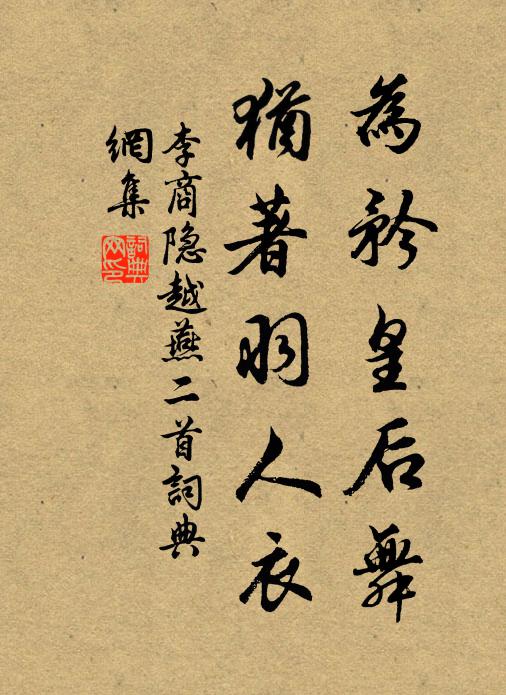 為矜皇后舞
猶著羽人衣
李商隐越燕二首詞典
網集
詞典
网印